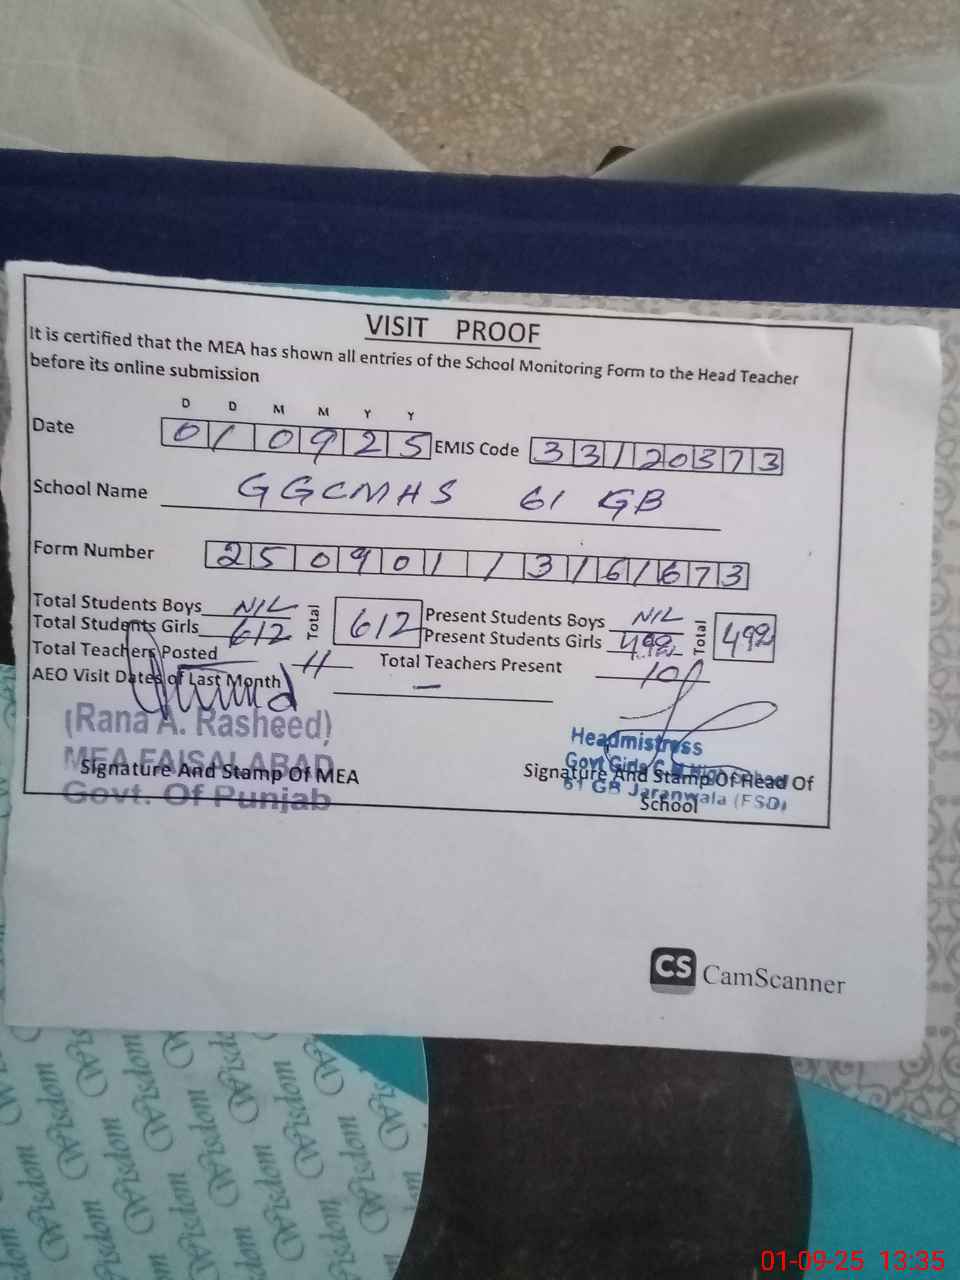 VISIT PROOF
It is certified that the MEA has shown all entries of the School Monitoring Form to the Head Teacher
before its online submission
D D M M Y Y
Date 010925 EMIS Code 33120373
School Name GGCMHS 61 GB
Form Number 250901/3161673
Total Students Boys NIL Total 612 Present Students Boys NIL Total 492
Total Students Girls 612 Present Students Girls 492
Total Teachers Posted 11 Total Teachers Present 10
AEO Visit Dates of Last Month —
(Rana A. Rasheed)
MEA FAISALABAD
Govt. Of Punjab
Signature And Stamp Of MEA
Headmistress
Govt Girls C.M High
61 GB Jaranwala (FSD)
Signature And Stamp Of Head Of
School
CS CamScanner
Wisdom
01-09-25 13:35